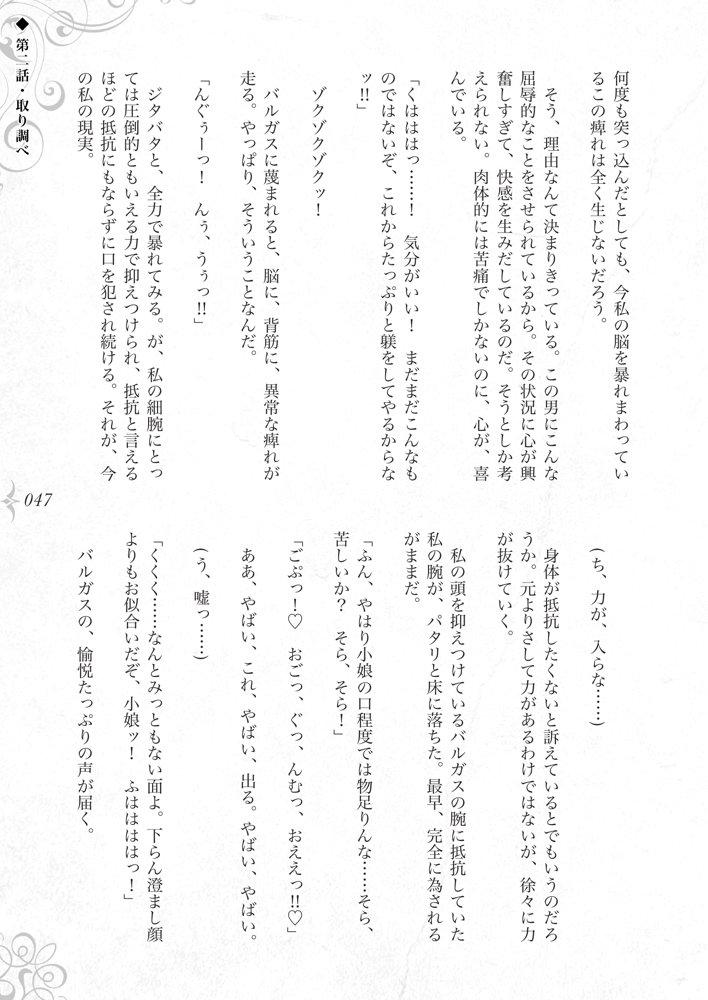 ◆ 第二話・取り調べ
何度も突っ込んだとしても、今私の脳を暴れまわってい
るこの痺れは全く生じないだろう。
そう、理由なんて決まりきっている。この男にこんな
屈辱的なことをさせられているから。その状況に心が興
奮しすぎて、快感を生みだしているのだ。そうとしか考
えられない。肉体的には苦痛でしかないのに、心が、喜
んでいる。
「くはははっ……！　気分がいい！　まだまだこんなも
のではないぞ、これからたっぷりと躾をしてやるからな
ッ!!」
ゾクゾクゾクッ！
バルガスに蔑まれると、脳に、背筋に、異常な痺れが
走る。やっぱり、そういうことなんだ。
「んぐぅーっ！　んぅ、うぅっ!!」
ジタバタと、全力で暴れてみる。が、私の細腕にとっ
ては圧倒的ともいえる力で抑えつけられ、抵抗と言える
ほどの抵抗にもならずに口を犯され続ける。それが、今
の私の現実。
(ち、力が、入らな……)
身体が抵抗したくないと訴えているとでもいうのだろ
うか。元よりさして力があるわけではないが、徐々に力
が抜けていく。
私の頭を抑えつけているバルガスの腕に抵抗していた
私の腕が、パタリと床に落ちた。最早、完全に為される
がままだ。
「ふん、やはり小娘の口程度では物足りんな……そら、
苦しいか？　そら、そら！」
「ごぷっ！♡　おごっ、ぐっ、んむっ、おええっ!!♡」
ああ、やばい、これ、やばい、出る。やばい、やばい。
(う、嘘っ……)
「くくく……なんとみっともない面よ。下らん澄まし顔
よりもお似合いだぞ、小娘ッ！　ふはははは​っ！」
バルガスの、愉悦たっぷりの声が届く。
047